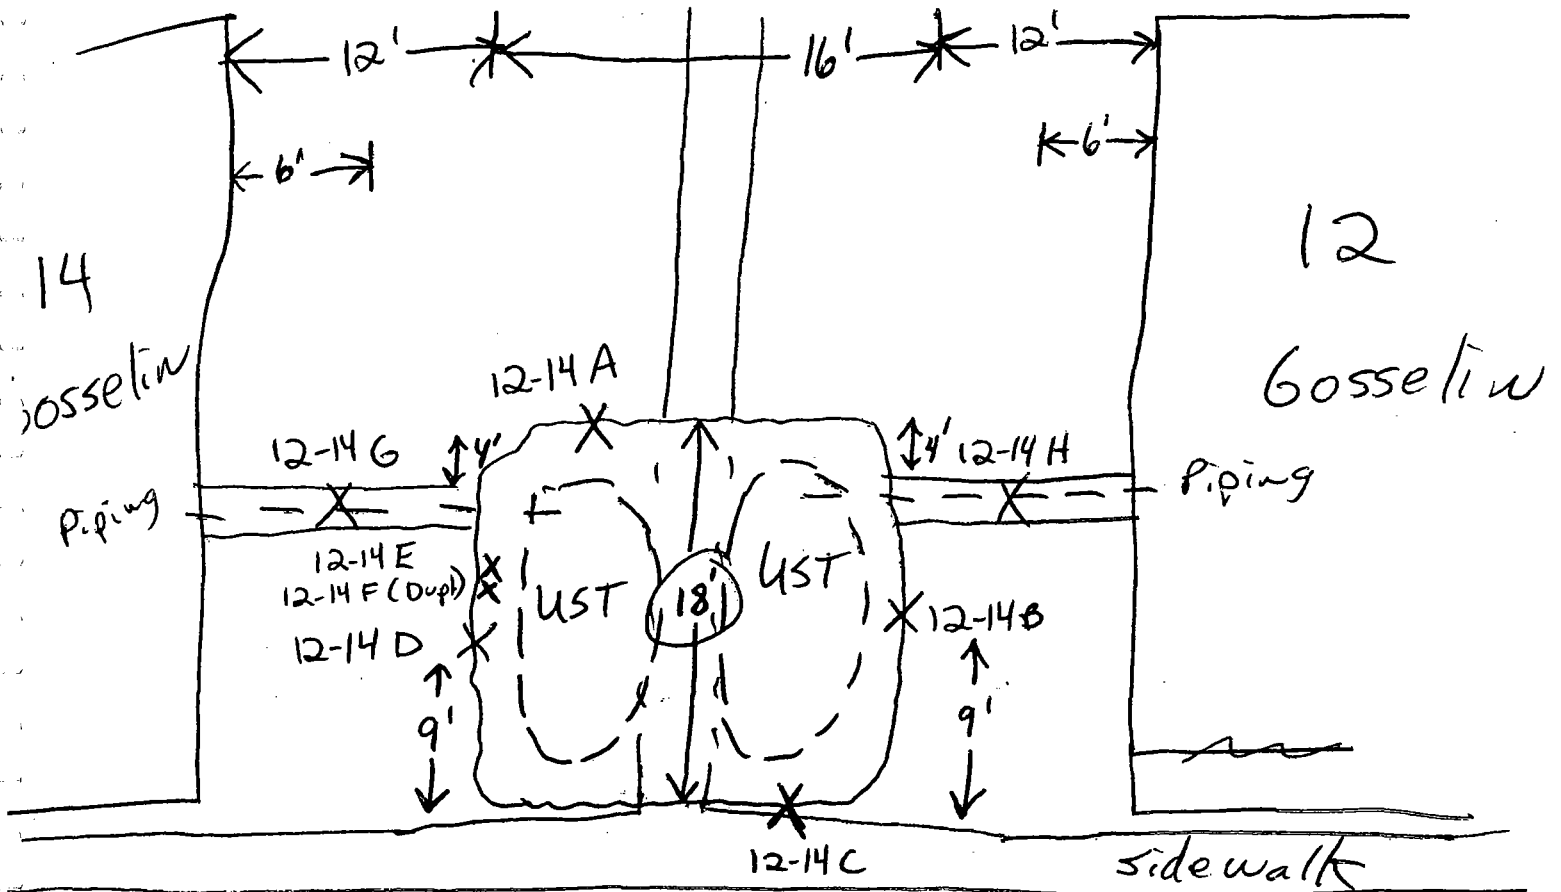 12' 16' 12'
6' 6'
14
12
Gosselin
12-14 A
12-14 G 4' 4' 12-14 H
Piping Piping
12-14 E
12-14 F (Dupl)
UST 18' UST
12-14 D 12-14 B
9' 9'
12-14 C
sidewalk